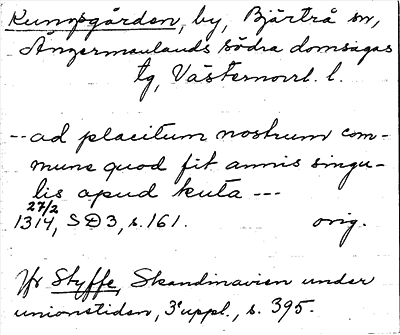 Kungsgården, by, Bjärtrå sn,
Ångermanlands södra domsagas
tg, Västernorrl. l.
-- ad placitum nostrum com-
mune quod fit annis singu-
lis apud kuta ---
27/2
1314, SD3, s. 161. orig.
Jfr Styffe, Skandinavien under
unionstiden, 3e uppl., s. 395.